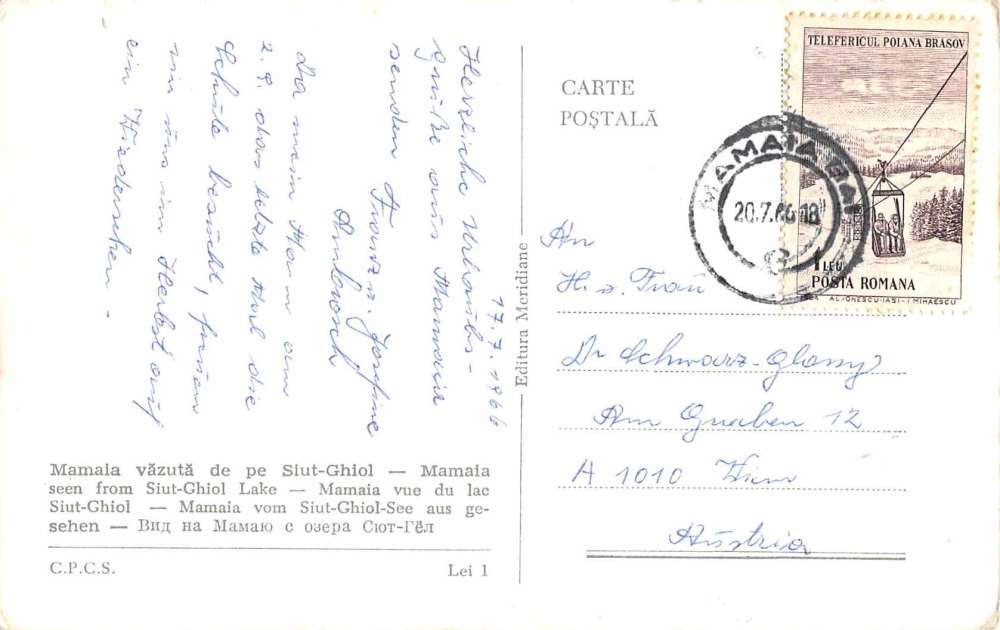 17.7.1966
Herzliche Urlaubs-
grüße aus Mamaia
senden Franz u. Josefine
Ambrosch
Da mein Mann am
2. 9. das letzte Mal die
Schule besucht, freuen
wir uns im Herbst auf
ein Wiedersehen.
Mamaia văzută de pe Siut-Ghiol — Mamaia
seen from Siut-Ghiol Lake — Mamaia vue du lac
Siut-Ghiol — Mamaia vom Siut-Ghiol-See aus ge-
sehen — Вид на Мамаю с озера Сют-Гёл
C.P.C.S.
Lei 1
Editura Meridiane
CARTE
POȘTALĂ
TELEFERICUL POIANA BRAȘOV
1 LEU
POSTA ROMANA
AL.IONESCU-IASI-I.MIHAESCU
MAMAIA BAI
20.7.66 18
An
H. u. Frau
Dr Schwarz-Glossy
Am Graben 12
A 1010 Wien
Austria